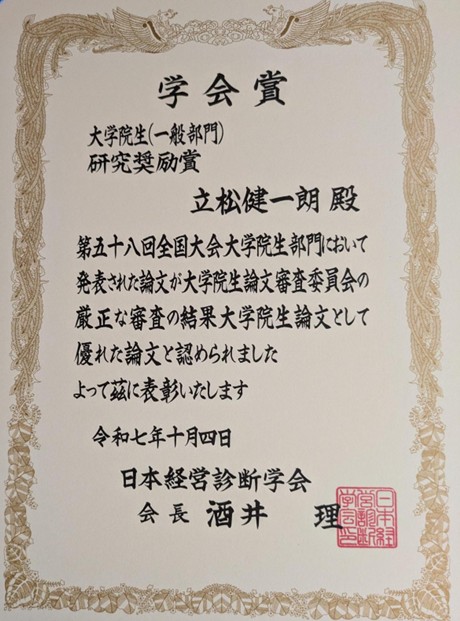 学会賞
大学院生(一般部門)
研究奨励賞
立松健一朗 殿
第五十八回全国大会大学院生部門において
発表された論文が大学院生論文審査委員会の
厳正な審査の結果大学院生論文として
優れた論文と認められました
よって茲に表彰いたします
令和七年十月四日
日本経営診断学会
会長 酒井 理
日本経
営診断
学会印